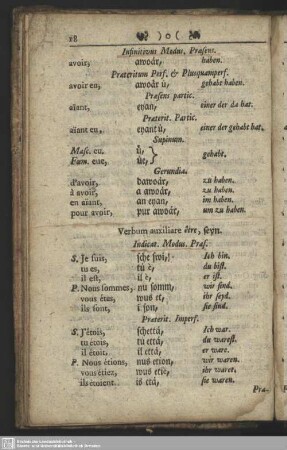 18 )o(
Infinitivus Modus. Præsens.
avoir, awoár, haben.
Præteritum Perf. & Plusquamperf.
avoir eu, awoár ü, gehabt haben.
Præsens partic.
aïant, eyan, einer der da hat.
Præterit. Partic.
aïant eu, eyant ü, einer der gehabt hat.
Supinum.
Masc. eu. ü,
Fœm. eue, üe, } gehabt.
Gerundia.
d'avoir, dawoár, zu haben.
à avoir, a awoár, zu haben.
en aïant, an eyan, im haben.
pour avoir, pur awoár, um zu haben.
Verbum auxiliare être, seyn.
Indicat. Modus. Præs.
S. Je suis, sche swi, Ich bin.
tu es, tü è, du bist.
il est, il è, er ist.
P. Nous sommes, nu somm, wir sind.
vous étes, wus et, ihr seyd.
ils sont, i son, sie sind.
Præterit. Imperf.
S. J'étois, schettä, Ich war.
tu étois, tü että, du warest.
il étoit, il että, er ware.
P. Nous étions, nus etion, wir waren.
vous étiez, wus etie, ihr waret.
ils étoient. is että, sie waren.
Præ-